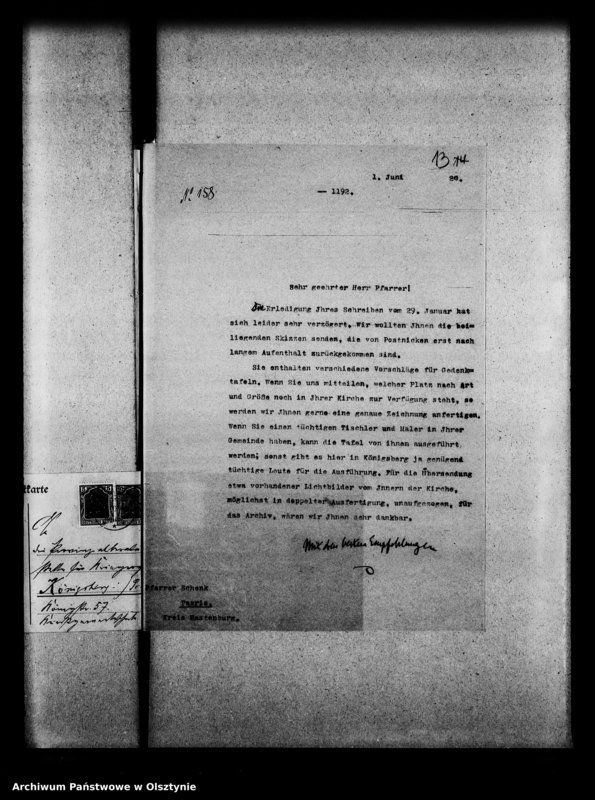 13 14
1. Juni 20.
№ 158
— 1192.
Sehr geehrter Herr Pfarrer!
Die Erledigung Jhres Schreiben vom 29. Januar hat
sich leider sehr verzögert. Wir wollten Jhnen die bei=
liegenden Skizzen senden, die von Postnicken erst nach
langem Aufenthalt zurückgekommen sind.
Sie enthalten verschiedene Vorschläge für Gedenk=
tafeln. Wenn Sie uns mitteilen, welcher Platz nach Art
und Größe noch in Jhrer Kirche zur Verfügung steht, so
werden wir Jhnen gerne eine genaue Zeichnung anfertigen.
Wenn Sie einen tüchtigen Tischler und Maler in Jhrer
Gemeinde haben, kann die Tafel von ihnen ausgeführt
werden; sonst gibt es hier in Königsberg ja genügend
tüchtige Leute für die Ausführung. Für die Übersendung
etwa vorhandener Lichtbilder vom Jnnern der Kirche,
möglichst in doppelter Ausfertigung, unaufgezogen, für
das Archiv, wären wir Jhnen sehr dankbar.
Mit den besten Empfehlungen
Pfarrer Schenk
Paaris.
Kreis Rastenburg.
tkarte
die Provinz
Königsberg i/
Königstr. 57.
Archiwum Państwowe w Olsztynie